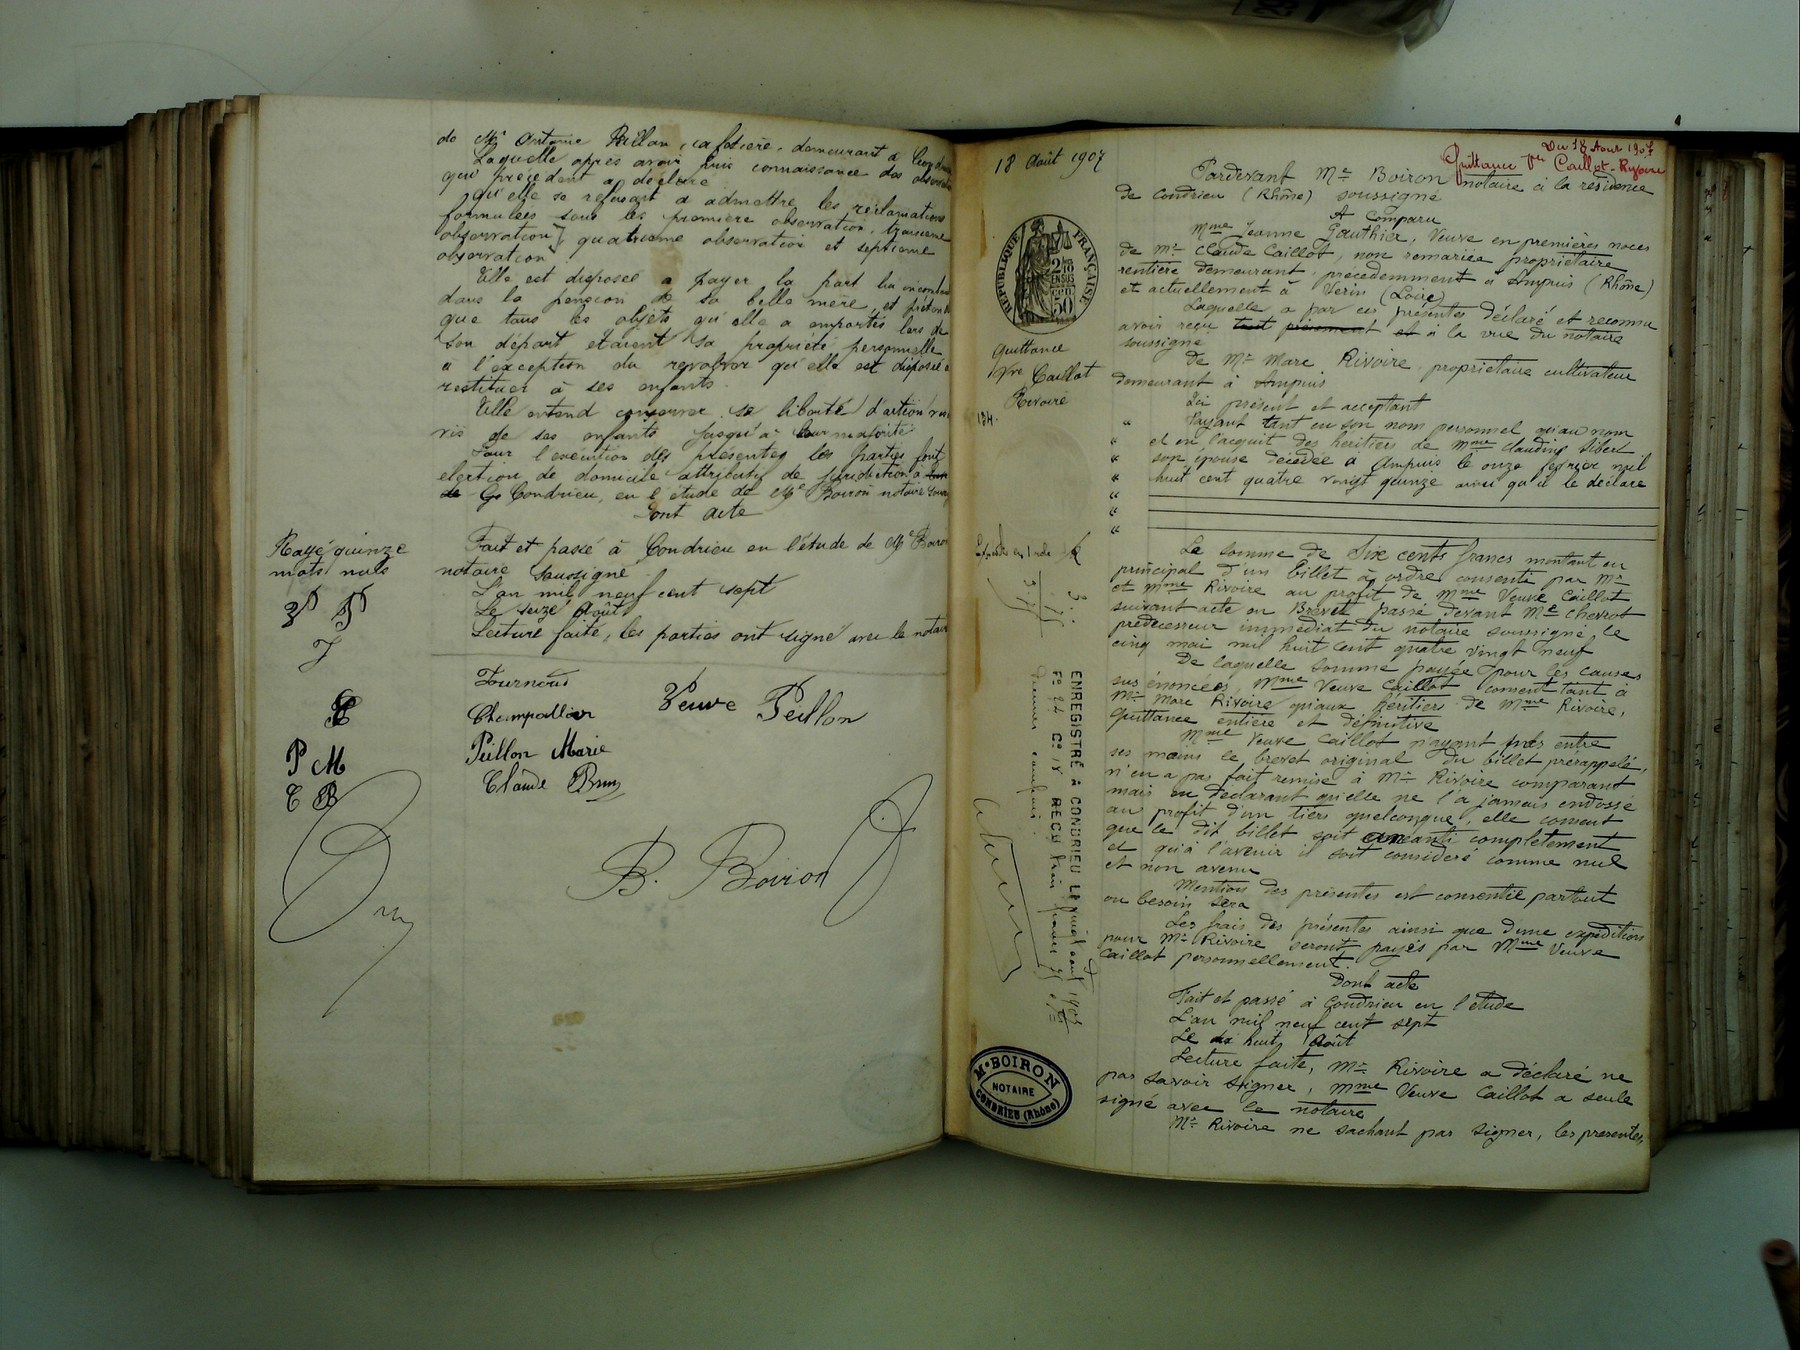 de Mr Antoine Peillon, cafetière, demeurant à Condrieu
Laquelle après avoir pris connaissance des observations
qui précèdent a déclaré
qu'elle se refusait à admettre les réclamations
formulées sous les première observation, troisième
observation, quatrième observation et septième
observation
Elle est disposée à payer la part lui incombant
dans la pension de sa belle mère, et prétend
que tous les objets qu'elle a emportés lors de
son départ étaient sa propriété personnelle
à l'exception du revolver qu'elle est disposée à
restituer à ses enfants.
Elle entend conserver sa liberté d'action vis
vis de ses enfants jusqu'à leur majorité
Pour l'exécution des présentes les parties font
élection de domicile attributif de juridiction à
Condrieu, en l'étude de Me Boiron notaire soussigné
Dont acte
Fait et passé à Condrieu en l'étude de Me Boiron
notaire soussigné
L'an mil neuf cent sept
Le seize Août
Lecture faite, les parties ont signé avec le notaire
Rayé quinze
mots nuls
Tournoud
Champallier
Veuve Peillon
Peillon Marie
Claude Bruy
P M
C B
B. Boiron
18 Août 1907
Du 18 Aout 1907
Quittance Vve Caillot-Rivoire
RÉPUBLIQUE FRANÇAISE
2/10 EN SUS
50
Quittance
Vve Caillot
Rivoire
184.
Pardevant Me Boiron notaire à la résidence
de Condrieu (Rhône) soussigné
A Comparu
Mme Jeanne Gauthier, Veuve en premières noces
de Mr Claude Caillot, non remariée propriétaire
rentière demeurant précédemment à Ampuis (Rhône)
et actuellement à Vérin (Loire)
Laquelle a par ces présentes déclaré et reconnu
avoir reçu tout présement et à la vue du notaire
soussigné
de Mr Marc Rivoire, propriétaire cultivateur
demeurant à Ampuis
Ici présent et acceptant
" Payant tant en son nom personnel qu'au nom
" et en l'acquit des héritiers de Mme Claudine Gibert
" son épouse décédée à Ampuis le onze février mil
" huit cent quatre vingt quinze ainsi qu'il le déclare
"
"
La somme de Six cents francs montant en
principal d'un billet à ordre consenti par Mr
et Mme Rivoire au profit de Mme Veuve Caillot
suivant acte en Brevet passé devant Me Chevrot
prédécesseur immédiat du notaire soussigné le
cinq mai mil huit cent quatre vingt neuf
De laquelle somme payée pour les causes
sus énoncées Mme Veuve Caillot consent tant à
Mr Marc Rivoire qu'aux héritiers de Mme Rivoire,
Quittance entière et définitive
Mme Veuve Caillot n'ayant pas entre
ses mains le brevet original du billet prérappelé,
n'en a pas fait remise à Mr Rivoire comparant
mais en déclarant qu'elle ne l'a jamais endossé
au profit d'un tiers quelconque, elle consent
que le dit billet soit anéanti complètement
et qu'à l'avenir il soit considéré comme nul
et non avenu
Mention des présentes est consentie partout
ou besoin sera
Les frais des présentes ainsi que d'une expédition
pour Mr Rivoire seront payés par Mme Veuve
Caillot personnellement.
Dont acte
Fait et passé à Condrieu en l'étude
L'an mil neuf cent sept
Le dix huit Août
Lecture faite, Mr Rivoire a déclaré ne
pas savoir signer, Mme Veuve Caillot a seule
signé avec le notaire
Mr Rivoire ne sachant pas signer, les présentes,
ENREGISTRÉ A CONDRIEU LE vingt août 1907
Fo 24 Co 18 REÇU trois francs 75 cs
Me BOIRON
NOTAIRE
CONDRIEU (Rhône)